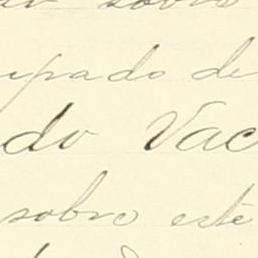 sobre
ipado de
do Vac
sobre este